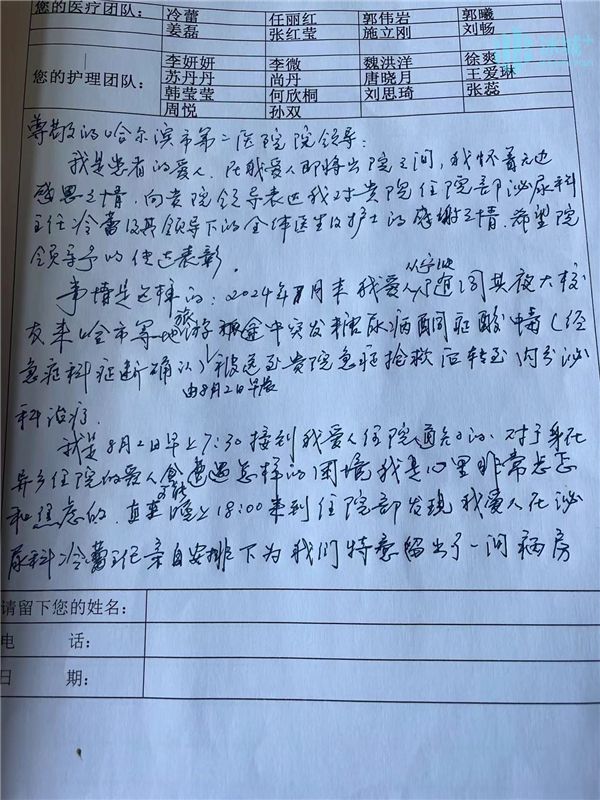 您的医疗团队: 冷蕾 任丽红 郭伟岩 郭曦
姜磊 张红莹 施立刚 刘畅
李妍妍 李微 魏洪洋 徐爽
您的护理团队: 苏丹丹 尚丹 唐晓月 王爱琳
韩莹莹 何欣桐 刘思琦 张蕊
周悦 孙双
尊敬的哈尔滨市第二医院院领导:
我是患者的爱人,在我爱人即将出院之间,我怀着无边
感恩之情,向贵院领导表达我对贵院住院部泌尿科
主任冷蕾及其领导下的全体医生及护士的感谢之情,希望院
领导予的使达表彰。
事情是这样的:2024年7月末我爱人 同其放大校
友来哈市等地旅游 途中突发糖尿病酮症酸中毒(经
急症科症断确认)被送至贵院急症抢救后转至内分泌
由8月2日早晨
科治疗。
我是8月2日早上7:30接到我爱人住院通知的,对于身在
异乡住院的爱人会遭遇怎样的困境我是心里非常忐忑
可能
和焦虑的,直至晚上18:00来到住院部发现我爱人在泌
尿科冷蕾主任亲自安排下为我们特意留出了一间病房
请留下您的姓名:
电 话:
日 期: